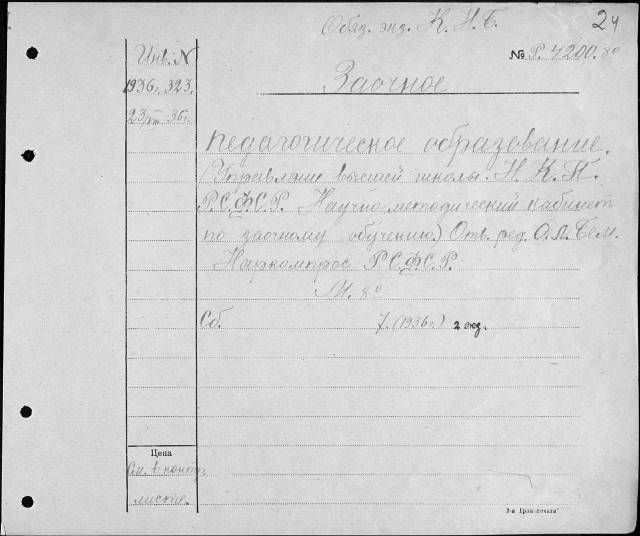 Обяз. экз. К. Н. Б.
24
Инв. N
№ Р. 4200. 8°
1936г. 323.
Заочное
23/VIII 36г.
педагогическое образование.
(Управление высшей школы. Н. К. П.
Р.С.Ф.С.Р. Научно-методический кабинет
по заочному обучению.) Отв. ред. О.Л. Бем.
Наркомпрос Р.С.Ф.С.Р.
М. 8°
Сб. 7. (1936г.) 2 экз.
Цена
См. в контр
листе.
3-я Гран. печати